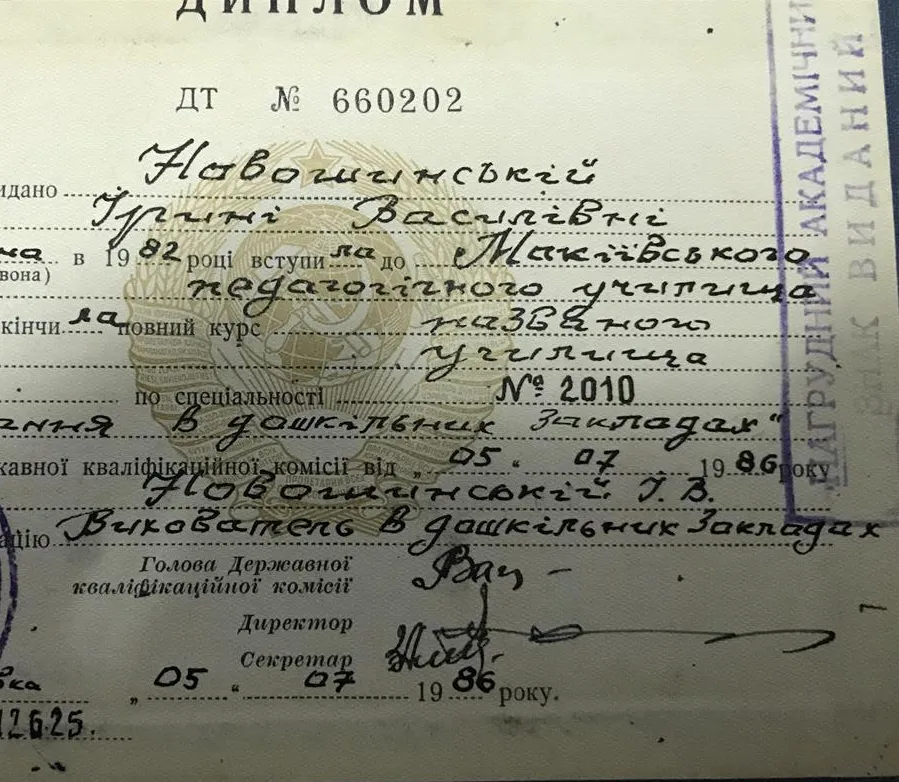 ДИПЛОМ
ДТ № 660202
идано Новошинській
Ірині Василівні
на в 1982 році вступила до Макіївського
вона)
педагогічного училища
кінчила повний курс названого
училища
по спеціальності № 2010
ання в дошкільних закладах"
жавної кваліфікаційної комісії від „05" 07 1986 року
Новошинській І. В.
ацію Вихователь в дошкільних закладах
Голова Державної
кваліфікаційної комісії
Директор
Секретар
вка „05" 07 1986 року.
12625.
НАГРУДНИЙ АКАДЕМІЧНИ
ЗНАК ВИДАНИЙ